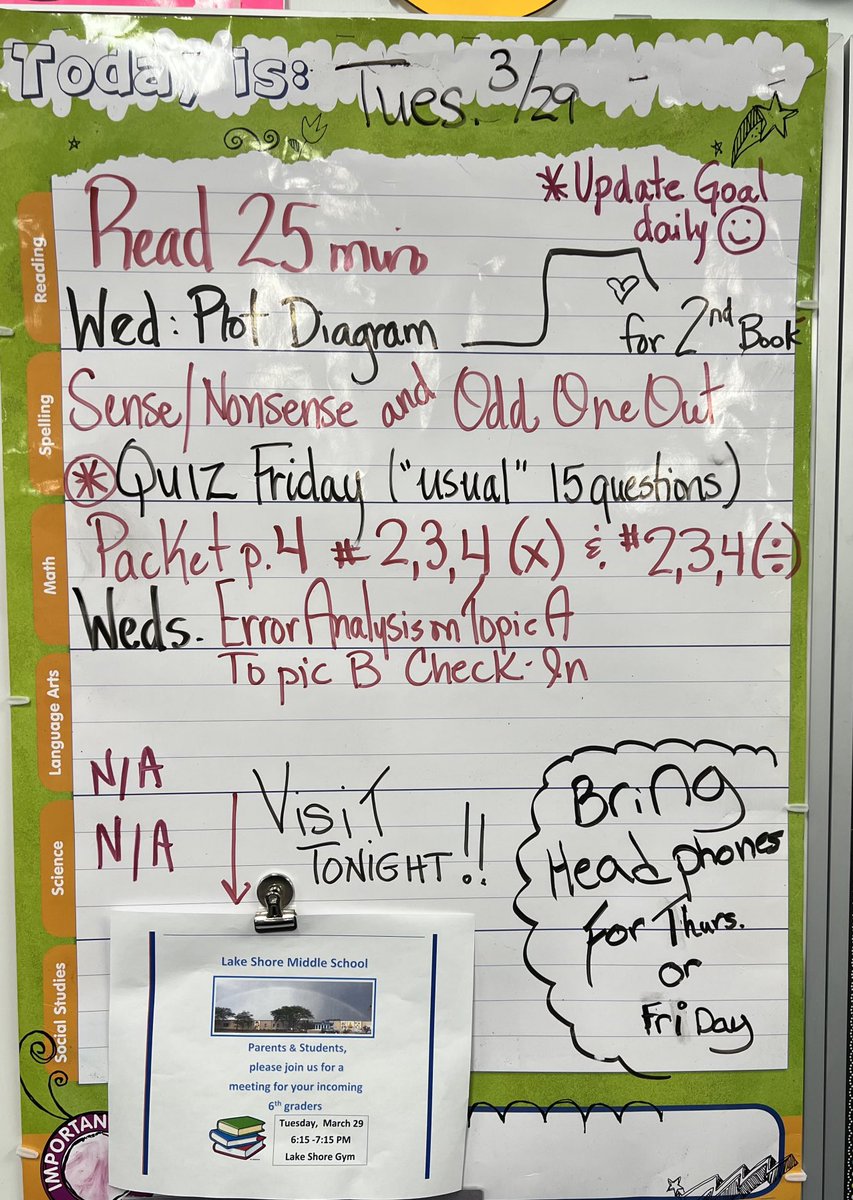 Today is: Tues. 3/29
*Update Goal
daily
Reading
Read 25 min
Wed: Plot Diagram for 2nd Book
Spelling
Sense/Nonsense and Odd One Out
*Quiz Friday ("usual" 15 questions)
Math
Packet p.4 # 2,3,4 (x) & #2,3,4 (÷)
Weds. Error Analysis on Topic A
Topic B Check-In
Language Arts
N/A
Science
N/A
Visit
Tonight!!
Bring
Headphones
for Thurs.
or
Friday
Social Studies
Lake Shore Middle School
Parents & Students,
please join us for a
meeting for your incoming
6th graders
Tuesday, March 29
6:15 -7:15 PM
Lake Shore Gym